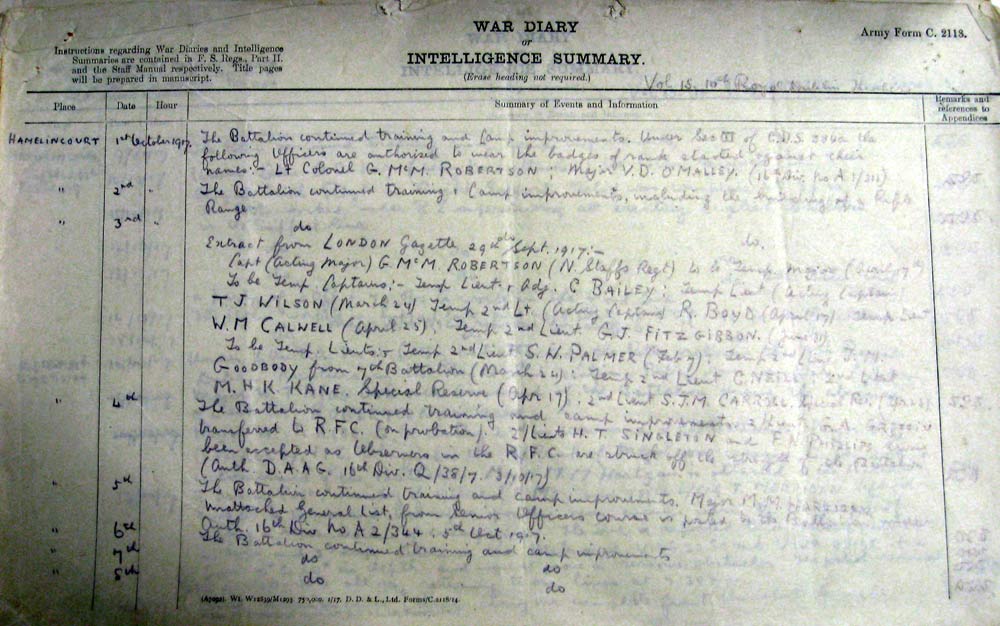 WAR DIARY
or
INTELLIGENCE SUMMARY.
(Erase heading not required.)
Army Form C. 2118.
Instructions regarding War Diaries and Intelligence
Summaries are contained in F. S. Regs., Part II.
and the Staff Manual respectively. Title pages
will be prepared in manuscript.
Vol 15. 10th Royal Dublin
Place Date Hour Summary of Events and Information Remarks and references to Appendices
HAMELINCOURT 1st October 1917. The Battalion continued training and Camp improvements. Under Sec III of the
following Officers are authorized to wear the badges of rank stated against their
names:- Lt Colonel G. McM. ROBERTSON; Major V.D. O'MALLEY. (16th Div. No A
" 2nd " The Battalion continued training & Camp improvements, including the building of a Rifle
Range
" 3rd " do do.
Extract from LONDON Gazette 29th Sept. 1917:-
Capt (Acting Major) G McM. ROBERTSON (N. Staffs Regt) to be Temp. Major (April 17th)
To be Temp Captains:- Temp Lieut & Adj. C BAILEY; Temp Lieut (Acting Captain)
T J WILSON (March 24) Temp 2nd Lt. (Acting Captain) R. BOYD (April 17) Temp Lieut
W. M CALWELL (April 25); Temp 2nd Lieut G.J. FITZGIBBON.
To be Temp. Lieuts:- Temp 2nd Lieut S. W. PALMER (Feb 7); Temp 2nd Lieut J. M.
GOODBODY from 7th Battalion (March 24): Temp 2nd Lieut C. NEILL; 2nd Lieut
M. H K KANE. Special Reserve (Apr 17); 2nd Lieut S.J.M. CARROLL.
" 4th The Battalion continued training and camp improvements. 2/Lieut
transferred to R.F.C. (on probation). 2/Lieuts H. T SINGLETON and F.N. PHILLIPS having
been accepted as Observers in the R.F.C. are struck off the strength of the Battalion
(Auth. D.A.A.G. 16th Div. Q/38/7. 3/10/17)
" 5th The Battalion continued training and camp improvements. Major M.M. HARRISON
Unattached General List, from Senior Officers course is posted to the Battalion under
Auth. 16th Div No A 2/344. 5th Oct 1917.
" 6th The Battalion continued training and camp improvements
" 7th do do
" 8th do do
750,000. 1/17. D. D. & L., Ltd. Forms/C.2118/14.